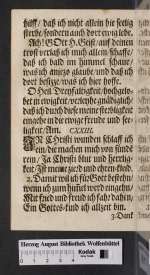 hilff / daß ich nicht allein hie seelig
sterbe / sondern auch dort ewig lebe.
Ach! GOtt H. Geist / auf deinen
trost verlaß ich mich allein / schaffe /
daß ich bald im himmel schaue /
was ich anietzt glaube / und daß ich
dort besitze / was ich hier hoffe.
O Heil. Dreyfaltigkeit / hochgelo-
bet in ewigkeit / verleyhe gnädiglich /
daß ich durch diese meine seeligkeit
eingehe in die ewige freude und see-
ligkeit / Am. CXXIII.
IN Christi wunden schlaff ich
ein / die machen mich von sünden
rein / Ja Christi blut und herrlig-
keit / Ist meine zierd und ehren-kleid.
2. Damit will ich für Gott bestehn /
wenn ich zum himel werd eingehn /
Mit fried und freud ich fahr dahin /
Ein Gottes-kind ich allzeit bin.
3. Danck
Herzog August Bibliothek Wolfenbüttel